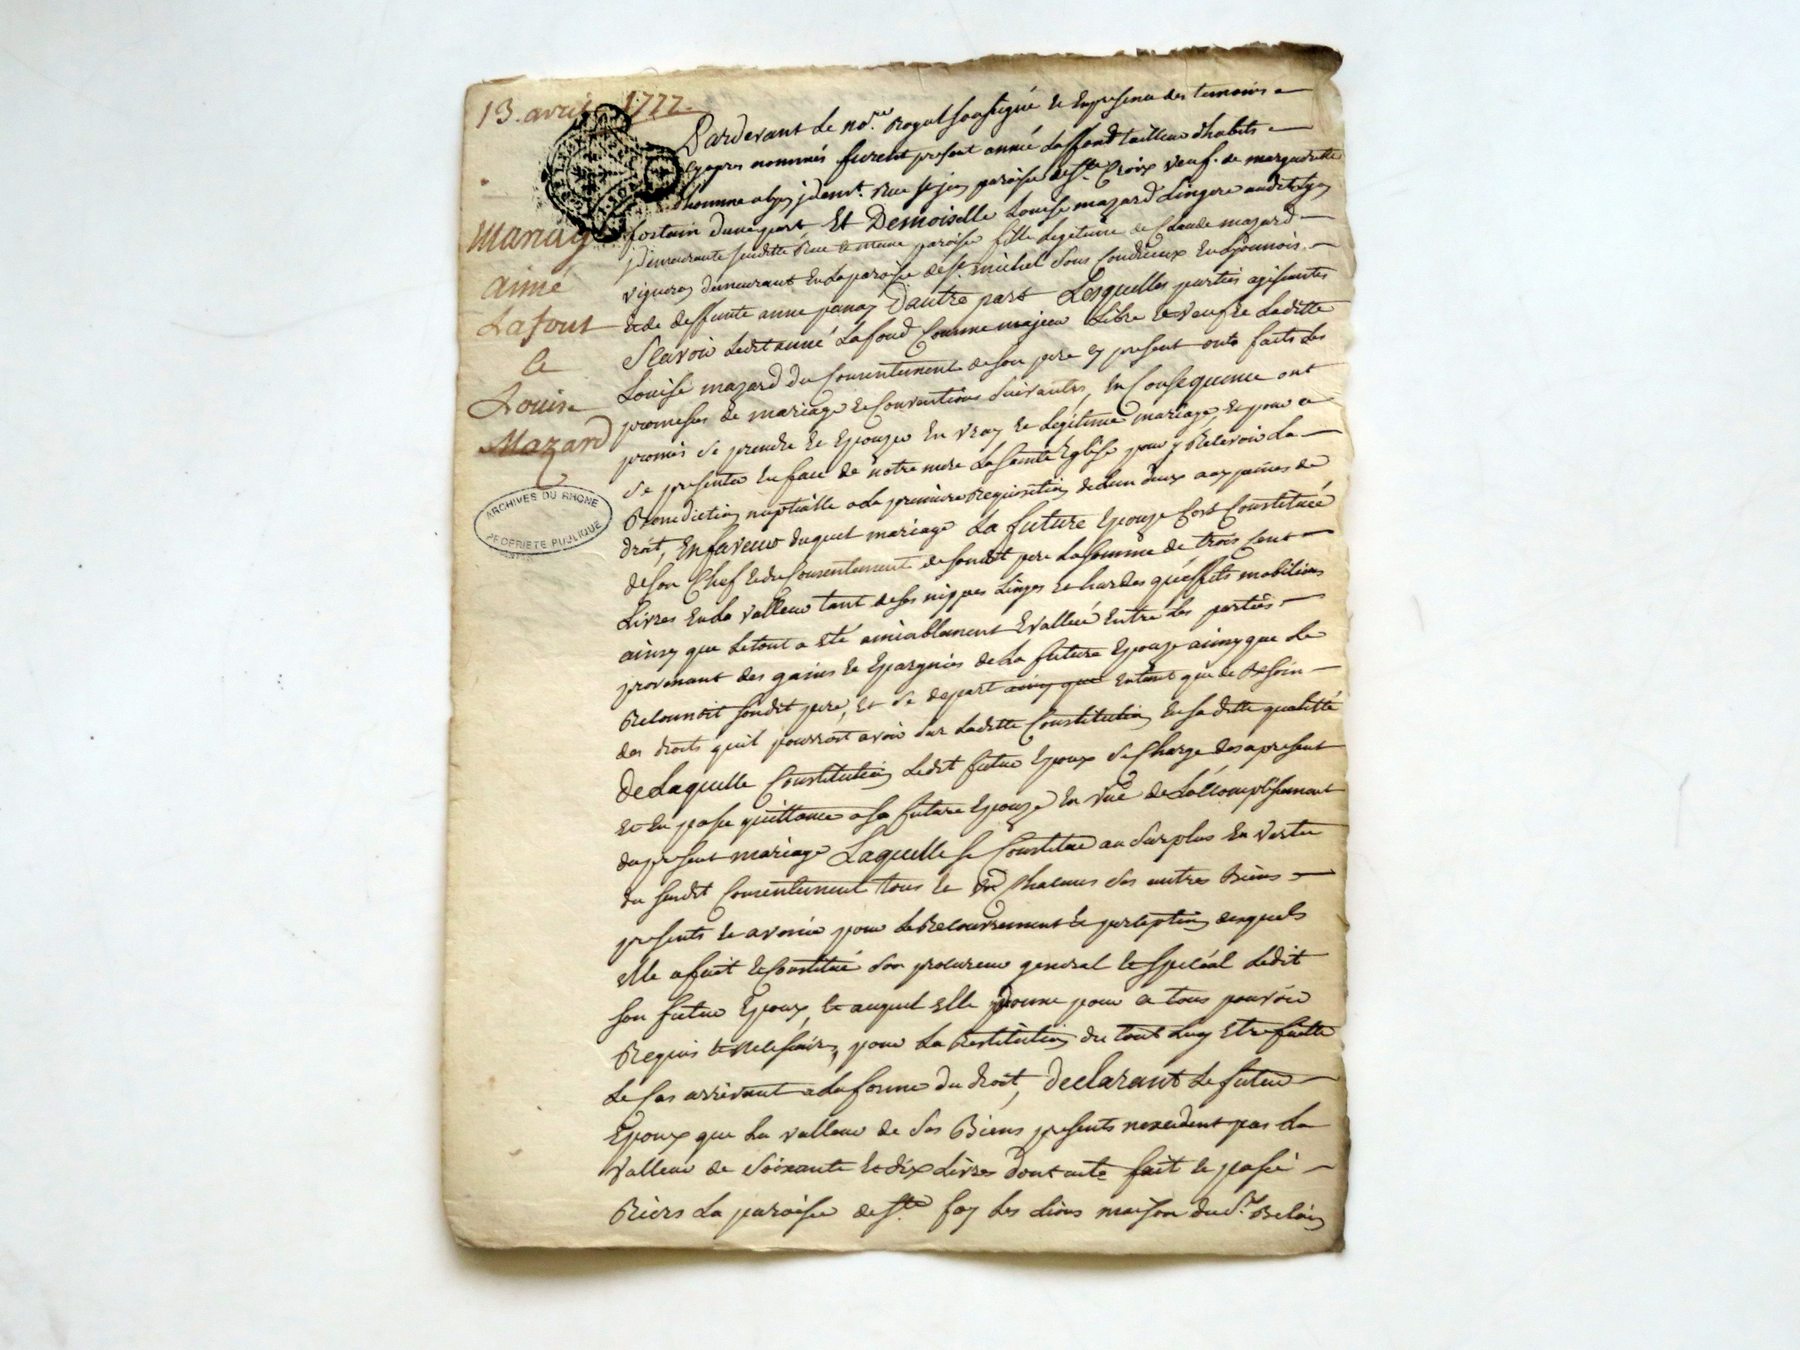 13. avril 1777.
Mariage
aimé
Lafont
et
Louise
Mazard
ARCHIVES DU RHONE
PROPRIETE PUBLIQUE
Pardevant Le no.re Royal soussigné et En presence des temoins
cyapres nommés furent present aimé Laffond tailleur d'habits
rue st jean paroisse de Ste. Croix veuf de marguerite
fontain d'une part Et Demoiselle Louise mazard Lingere audit Lyon
demeurante susditte Rue et meme paroisse fille Legitime de Claude mazard
vigneron demeurant En La paroisse de st. michel sous Condrieux En Lyonnois
et de deffunte anne D'autre part Lesquelles parties agissantes
Sçavoir Ledit aimé Lafond Comme majeur Libre et veuf et Laditte
Louise mazard du Consentement de son pere cy present onts faits Les
promesses de mariage et Conventions suivantes, En Consequence ont
promis se prendre et Epouzer En vray et Legitime mariage, et pour ce
se presenter En face de notre mere La sainte Eglise pour y Recevoir La
Benediction nuptialle a la premiere Requisition de L'un d'eux aux peines de
droit, En faveur duquel mariage La future Epouze s'est Constituée
de son Chef et du Consentement de sondit pere La somme de trois Cent
Livres En La valleur tant de ses nippes Linges et hardes qu'effets mobiliers
ainsy que Le tout a eté amiablement Evallué Entre Les parties
provenant des gains et Epargnes de La future Epouze ainsy que Le
Reconnoit sondit pere, Et se depart ainsy que Entant que de Besoin
des droits qu'il pourroit avoir sur Laditte Constitution En sa ditte qualitté
De Laquelle Constitution Ledit futur Epoux se Charge des a present
et En passe quittance a sa future Epouze En vue de L'accomplissement
du present mariage Laquelle se Constitue au surplus En vertu
du susdit Consentement tous et Chacuns ses autres Biens
presents et avenir pour Le Recouvrement et perception desquels
elle a fait et Constitué son procureur general et special Ledit
son futur Epoux, et auquel elle donne pour ce tous pouvoir
Requis et necessaire, pour La Restitution du tout Luy Etre faitte
Le Cas arrivant a La forme du droit, Declarant Le futur
Epoux que La valleur de ses Biens presents n'excedent pas La
valleur de soixante et dix Livres dont acte fait et passé
Riere La paroisse de Ste foy Les Lions maison du Sr.